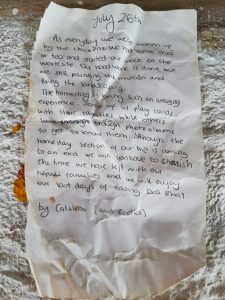 July 26th
As everyday we were awoken up
by the chickens. We had some
of tea and started our walk to the
worksite. Our hard work is done but
we still painting the and
fixing the landscaping.
The homestay is being such an amazing
experience. Some of us play cards
with their families while others
look through photo albums
to get to know them. Although the
homestay section of our trip is coming
to an end we will continue to cherish
the time we have left with our
Nepali families and we will enjoy
our last days of eating Dal Bhat.
by Catalina (and Rachel)